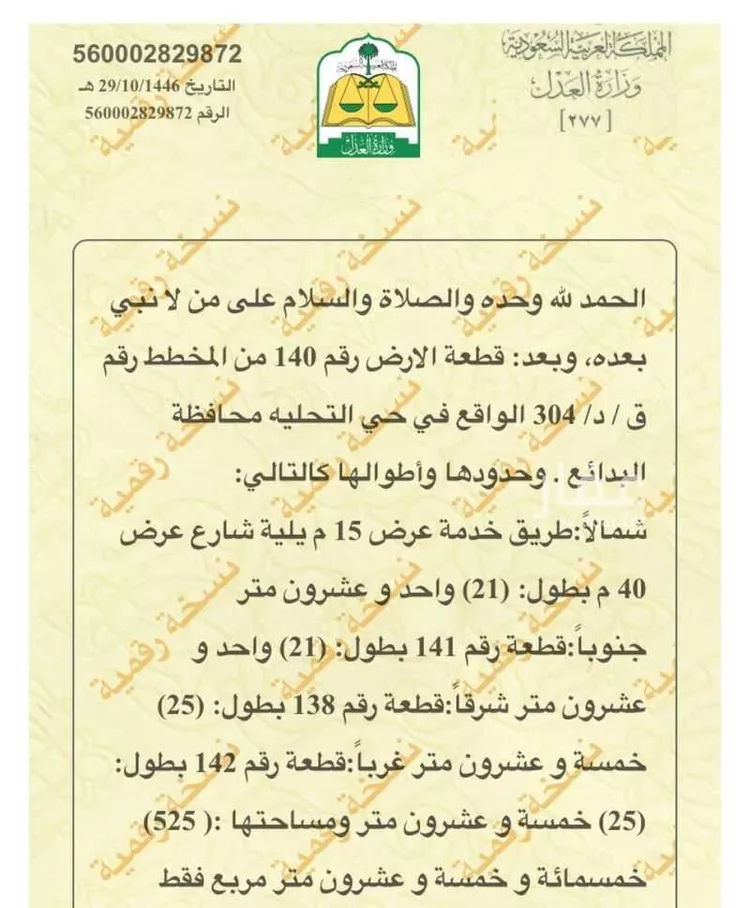 560002829872
التاريخ 29/10/1446 هـ
الرقم 560002829872
وزارة العدل
المملكة العربية السعودية
وزارة العدل
[٢٧٧]
الحمد لله وحده والصلاة والسلام على من لا نبي
بعده، وبعد: قطعة الارض رقم 140 من المخطط رقم
ق / د/ 304 الواقع في حي التحليه محافظة
البدائع . وحدودها وأطوالها كالتالي:
شمالاً:طريق خدمة عرض 15 م يلية شارع عرض
40 م بطول: (21) واحد و عشرون متر
جنوباً:قطعة رقم 141 بطول: (21) واحد و
عشرون متر شرقاً:قطعة رقم 138 بطول: (25)
خمسة و عشرون متر غرباً:قطعة رقم 142 بطول:
(25) خمسة و عشرون متر ومساحتها :( 525)
خمسمائة و خمسة و عشرون متر مربع فقط
نسخة رقمية
عقار